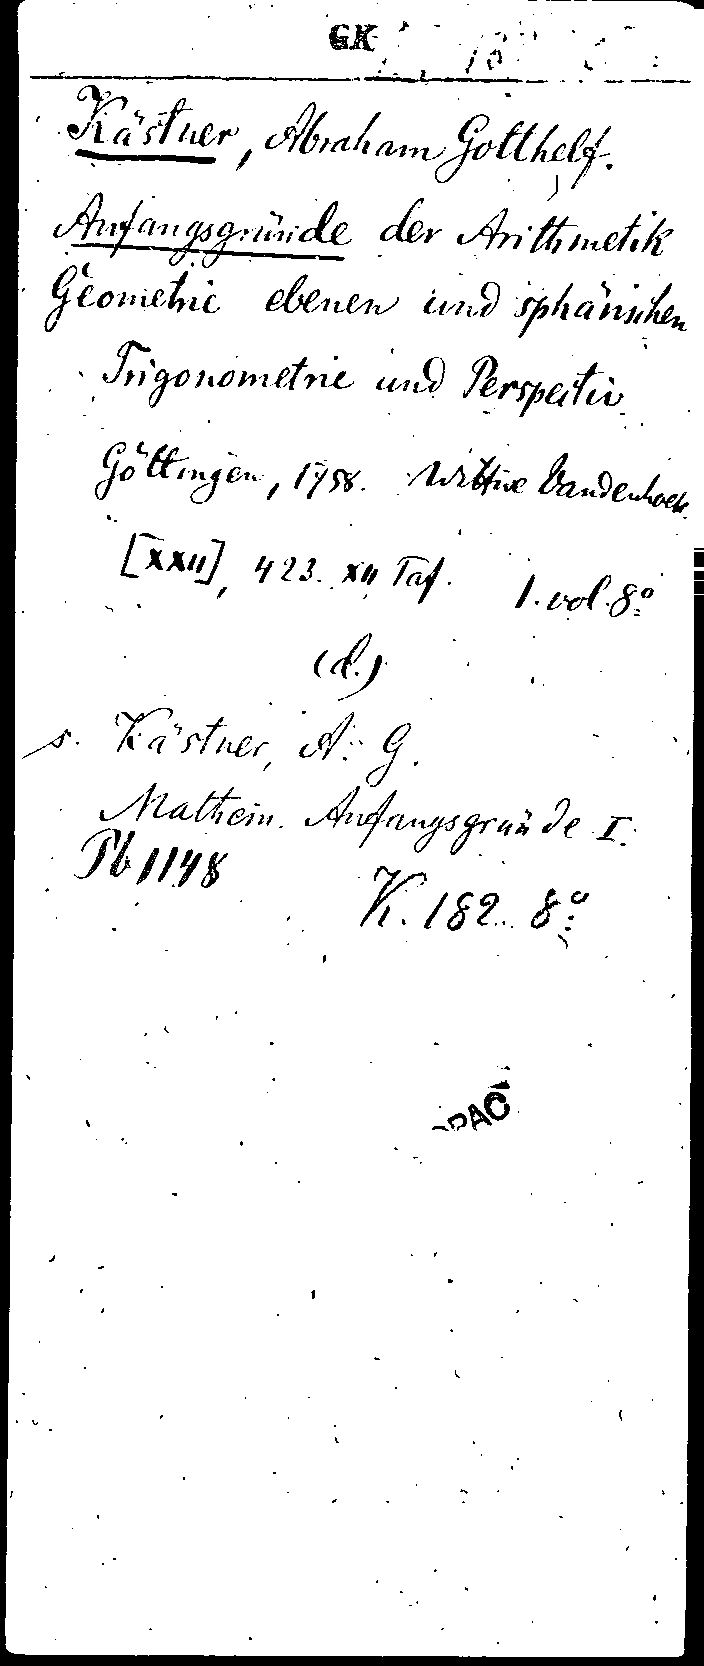 GK
Kästner, Abraham Gotthelf.
Anfangsgründe der Arithmetik
Geometrie ebenen und sphärischen
Trigonometrie und Perspectiv
Göttingen, 1758. Wittwe Vandenhoek.
[XXII], 423. XII Taf. 1. vol. 8o
(d.)
s. Kästner, A. G.
Mathem. Anfangsgründe I.
Pb 1148
K. 182. 8o
OPAC